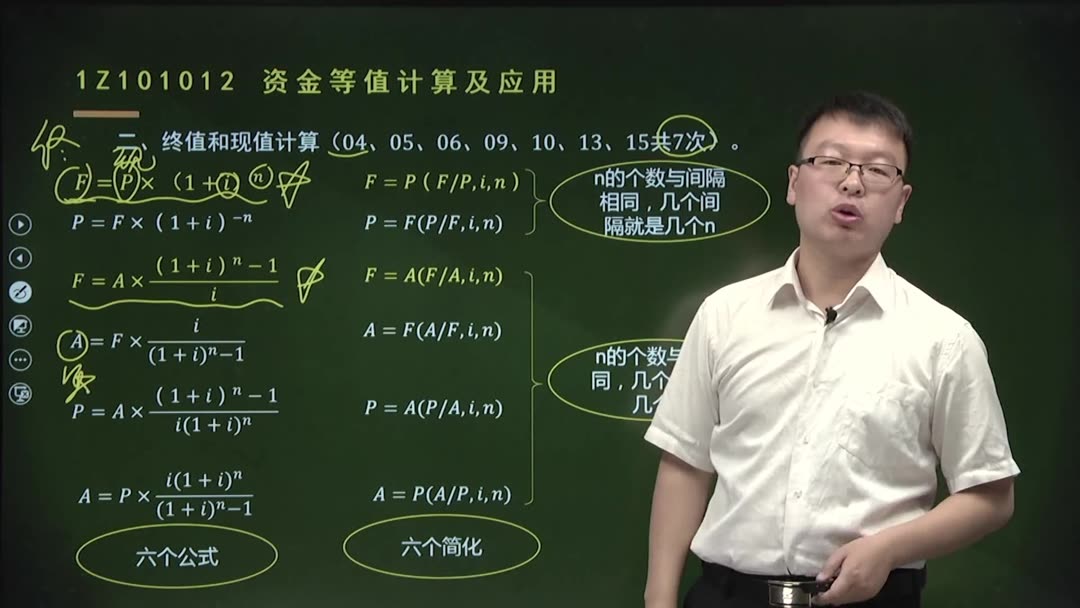 1Z101012 资金等值计算及应用
二、终值和现值计算（04、05、06、09、10、13、15共7次）。
F = P × （1 + i）ⁿ
F = P ( F/P, i, n )
n的个数与间隔
相同，几个间
隔就是几个n
P = F × ( 1 + i ) ⁻ⁿ
P = F(P/F, i, n)
F = A × (（1 + i）ⁿ − 1) / i
F = A(F/A, i, n)
A = F × i / ((1 + i)ⁿ−1)
A = F(A/F, i, n)
n的个数与
同，几个
几
P = A × (（1 + i）ⁿ − 1) / (i(1 + i)ⁿ)
P = A(P/A, i, n)
A = P × (i(1 + i)ⁿ) / ((1 + i)ⁿ−1)
A = P(A/P, i, n)
六个公式
六个简化